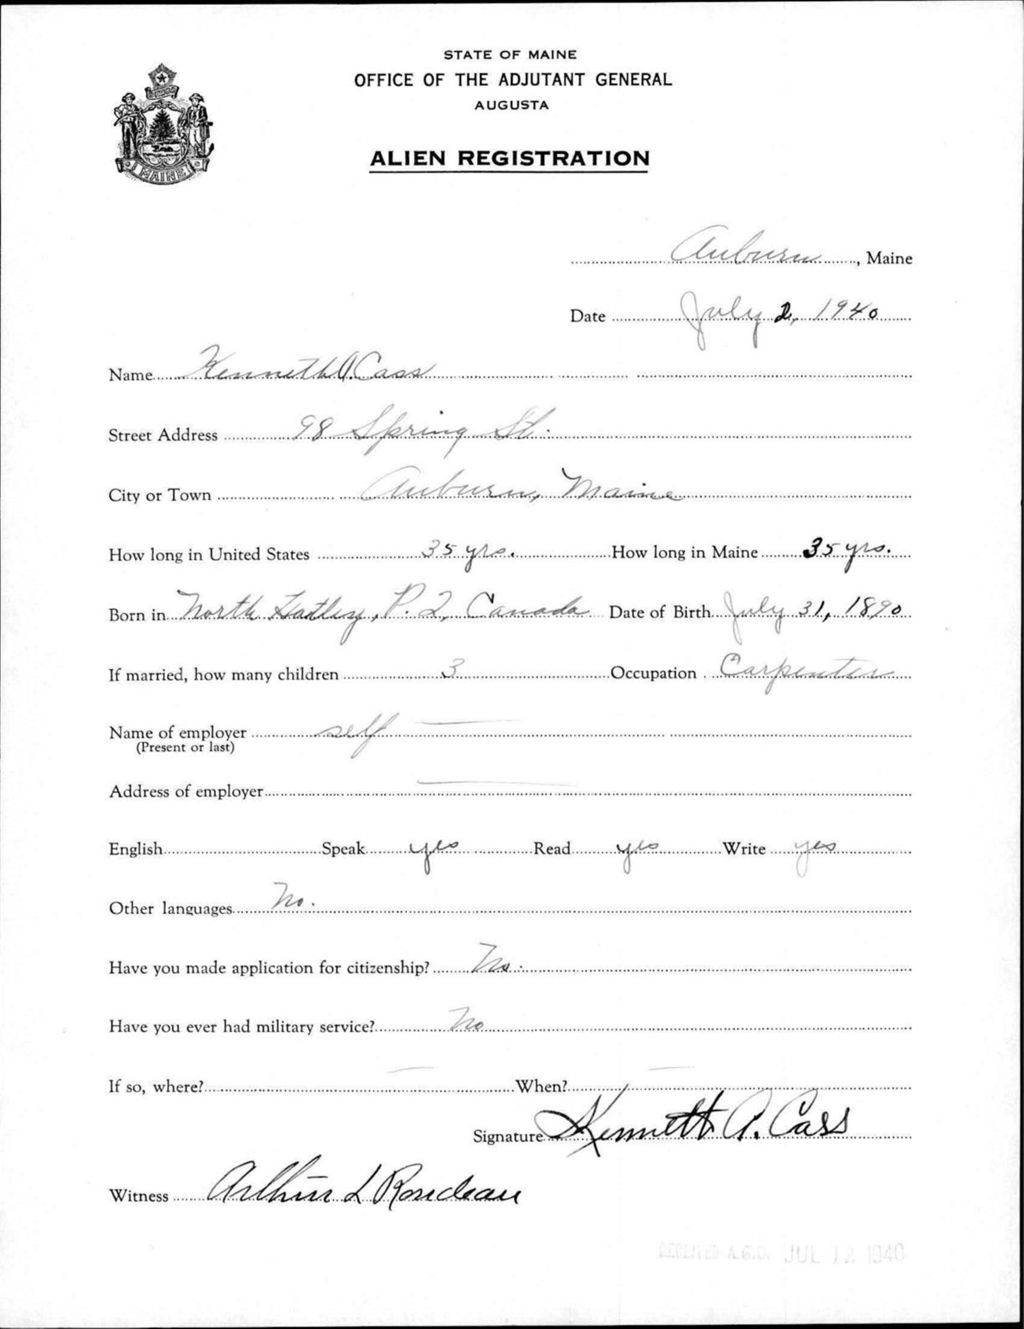 STATE OF MAINE
OFFICE OF THE ADJUTANT GENERAL
AUGUSTA
ALIEN REGISTRATION
MAINE
Auburn, Maine
Date July 2, 1940
Name Kenneth A. Cass
Street Address 98 Spring St.
City or Town Auburn, Maine
How long in United States 35 yrs. How long in Maine 35 yrs.
Born in North Hatley, P. Q. Canada Date of Birth July 31, 1890
If married, how many children 3 Occupation Carpenter
Name of employer self
(Present or last)
Address of employer
English Speak yes Read yes Write yes
Other languages No.
Have you made application for citizenship? No.
Have you ever had military service? No
If so, where? When?
Signature Kenneth A. Cass
Witness Arthur L Rondeau
RECEIVED A.G.O. JUL 12 1940